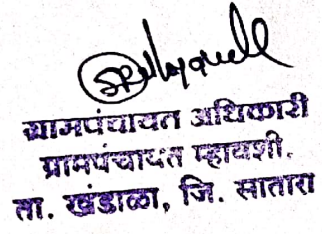 ग्रामपंचायत अधिकारी
ग्रामपंचायत म्हावशी.
ता. खंडाळा, जि. सातारा